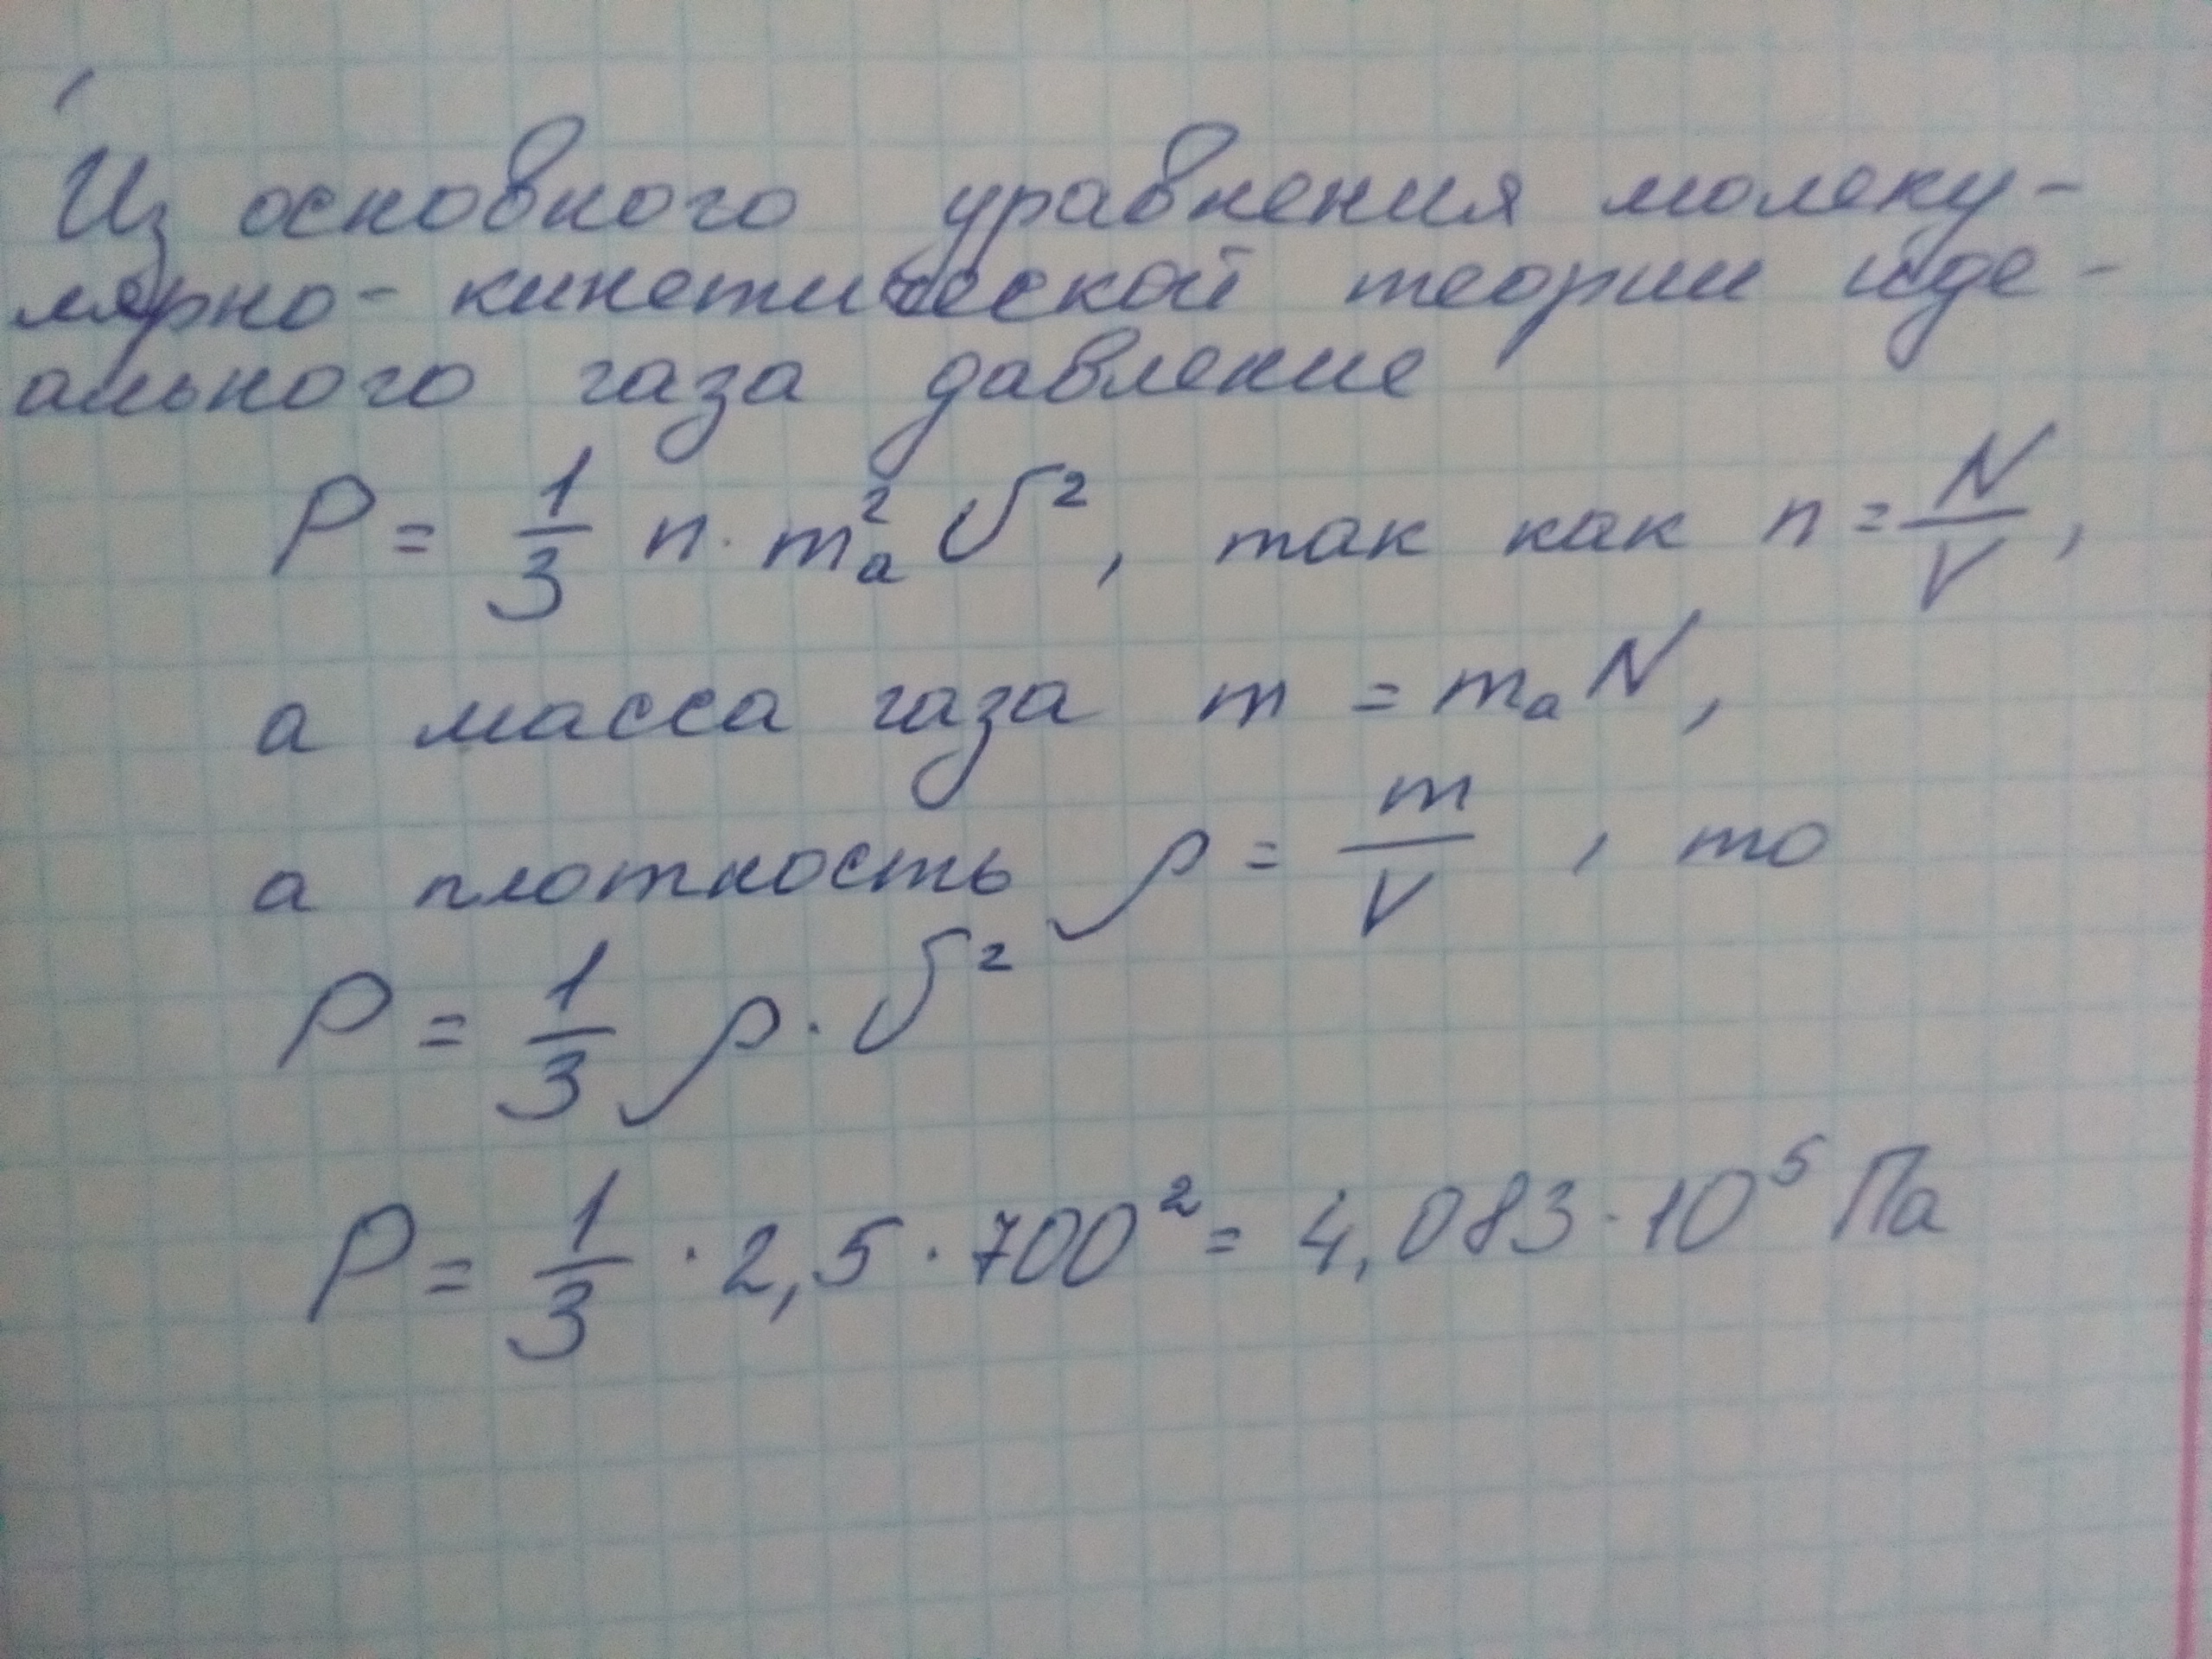 Из основного уравнения молеку-
лярно-кинетической теории иде-
ального газа давление
P = 1/3 n · mₐ² υ², так как n = N/V,
а масса газа m = mₐ N,
а плотность ρ = m/V, то
P = 1/3 ρ · υ²
P = 1/3 · 2,5 · 700² = 4,083 · 10⁵ Па